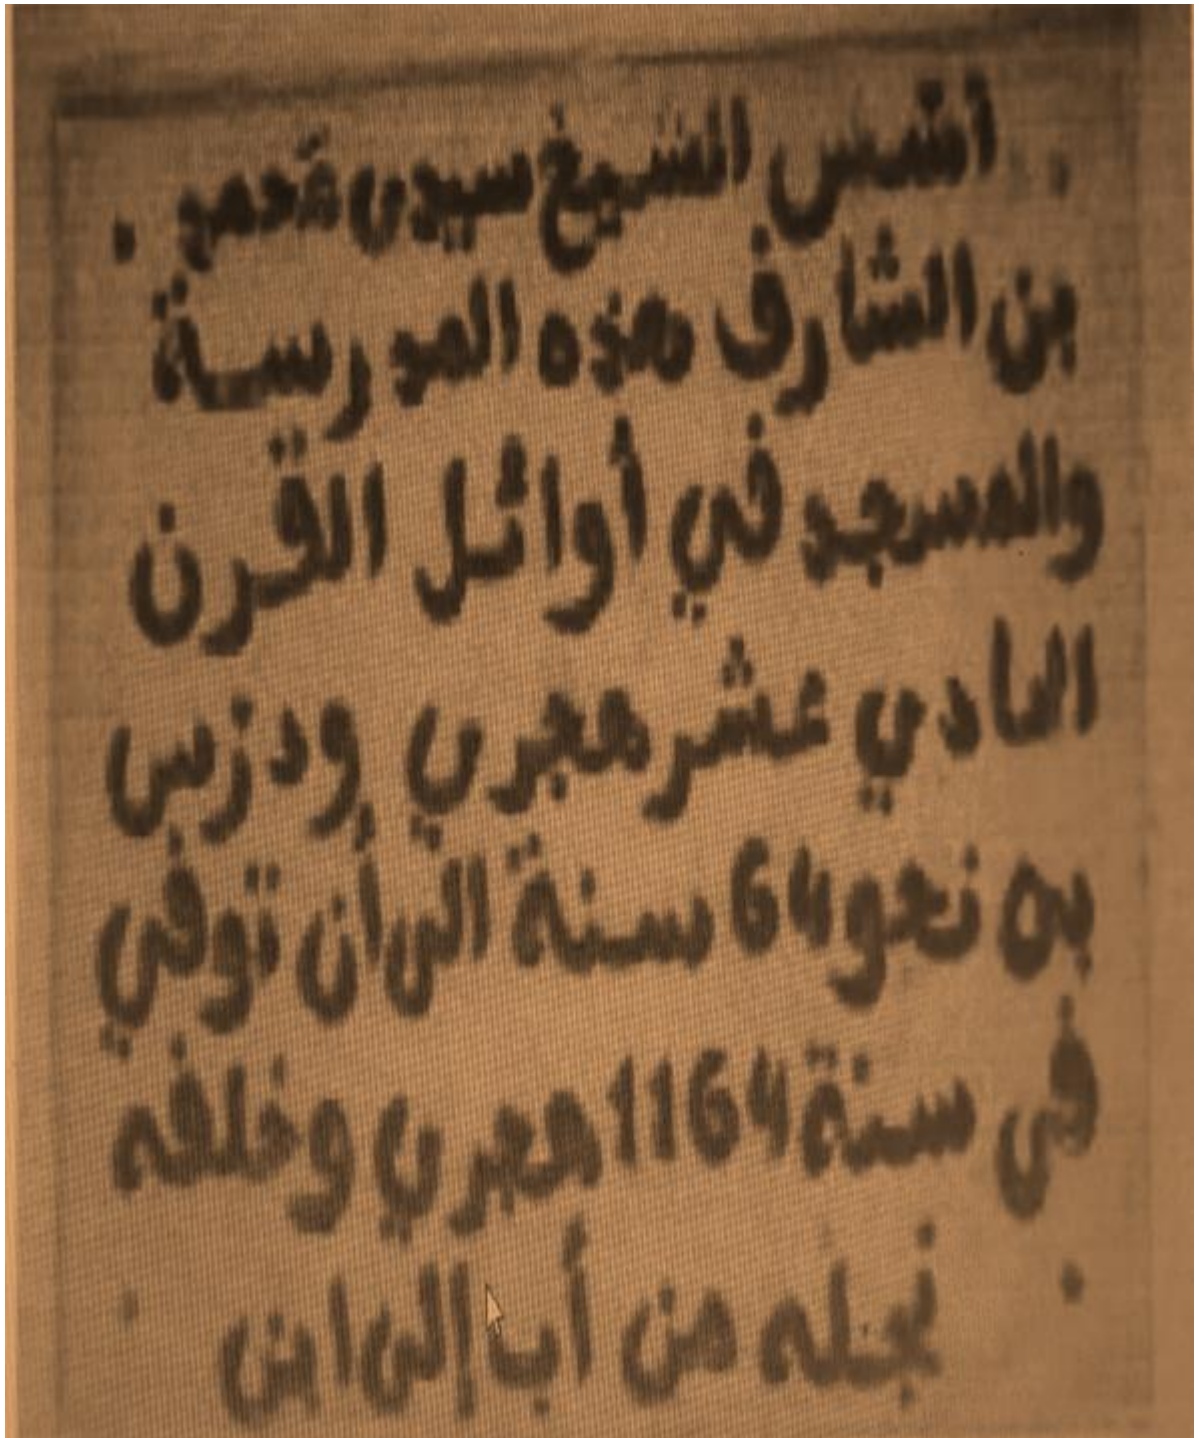 أسس الشيخ سيدي محمد
بن الشارف هذه المدرسة
والمسجد في أوائل القرن
الحادي عشر هجري ودرس
به نحو 64 سنة الى أن توفي
في سنة 1164 هجري وخلفه
نجله من أب إلى ابن